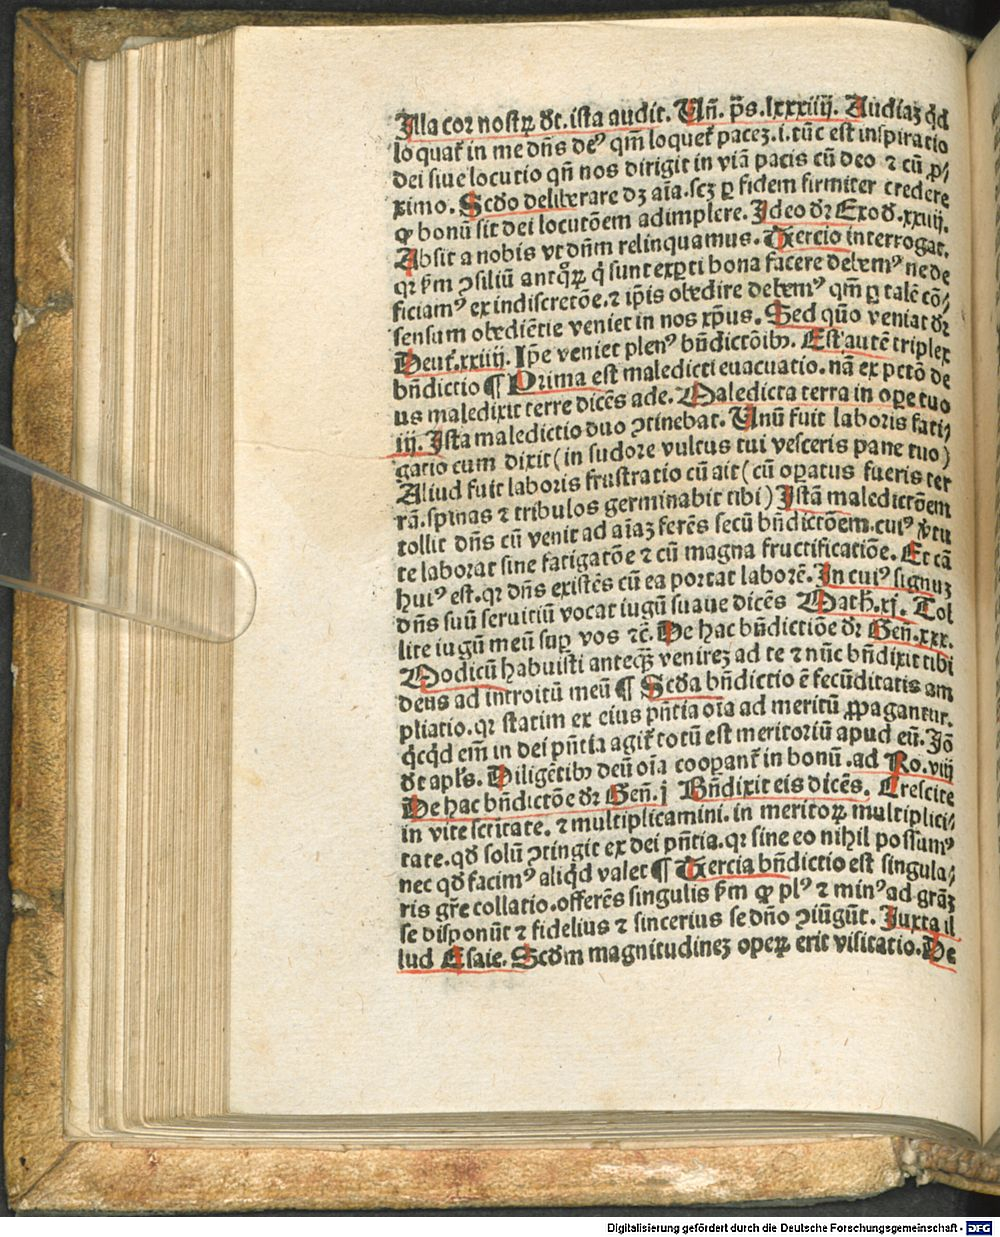 Illa cor nostꝝ ꝺt. ista audit. Vñ. p̄s. lxxxiiij. Audiaz qͥd
loquat᷑ in me dñs deꝰ qm̄ loquet᷑ pacez .i. tūc est inspiratio
dei siue locutio qñ nos dirigit in viā pacis cū deo ⁊ cū ꝓ/
ximo. Scd̓o deliberare dꝫ aīa. scꝫ ꝑ fidem firmiter credere
ꝙ bonū sit dei locutōem adimplere. Ideo d̓r Exod̓. xxiij.
Absit a nobis vt dn̄m relinquamus. Tercio interrogat.
qꝛ ẜm ꝯsiliū antqͦꝝ qͥ sunt exꝑti bona facere debemꝰ ne de
ficiamꝰ ex indiscretōe. ⁊ ip̄is obedire debemꝰ qm̄ ꝑ talē cō/
sensum obediētie veniet in nos xp̄us. Sed quō veniat d̓r
Deut᷑. xxiiij. Ip̄e veniet plenꝰ bn̄dictōibꝰ. Est autē triplex
bn̄dictio ¶ Prima est maledicti euacuatio. nā ex pctō de
us maledixit terre dicēs ade. Maledicta terra in oꝑe tuo
iij. Ista maledictio duo ꝯtinebat. Vnū fuit laboris fati/
gatio cum dixit (in sudore vultus tui vesceris pane tuo)
Aliud fuit laboris frustratio cū ait (cū oꝑatus fueris ter
rā. spinas ⁊ tribulos germinabit tibi) Istā maledictōem
tollit dn̄s cū venit ad aīaz ferēs secū bn̄dictōem. cuiꝰ v̓tu
te laborat sine fatigatōe ⁊ cū magna fructificatiōe. Et cā
huiꝰ est. qꝛ dn̄s existēs cū ea portat laborē. In cuiꝰ signuz
dn̄s suū seruitiū vocat iugū suaue dicēs Math̓. xj. Tol
lite iugū meū suꝑ vos ⁊c̄. De hac bn̄dictiōe d̓r Gen̄. xxx.
Modicū habuisti anteqͣꝫ venirez ad te ⁊ nūc bn̄dixit tibi
deus ad introitū meū ¶ Scd̓a bn̄dictio ē fecūditatis am
pliatio. qꝛ statim ex eius pn̄tia oīa ad meritū ꝓpagantur.
qͥcqͥd em̄ in dei pn̄tia agit᷑ totū est meritoriū apud eū. Iō
d̓t apl̓s. Diligētibꝰ deū oīa cooꝑant᷑ in bonū. ad Ro. viij
De hac bn̄dictōe d̓r Gen̄. j Bn̄dixit eis dicēs. Crescite
in vite sctītate. ⁊ multiplicamini. in meritoꝝ multiplici/
tate. qd̓ solū ꝯtingit ex dei pn̄tia. qꝛ sine eo nihil possumꝰ
nec qd̓ facimꝰ aliqͥd valet ¶ Tercia bn̄dictio est singula/
ris gr̄e collatio. offerēs singulis ẜm ꝙ plꝰ ⁊ minꝰ ad grāꝫ
se disponūt ⁊ fidelius ⁊ sincerius se dn̄o ꝯiūgūt. Iuxta il
lud Esaie. Scd̓m magnitudineꝫ operꝝ erit visitatio. De
Digitalisierung gefördert durch die Deutsche Forschungsgemeinschaft - DFG